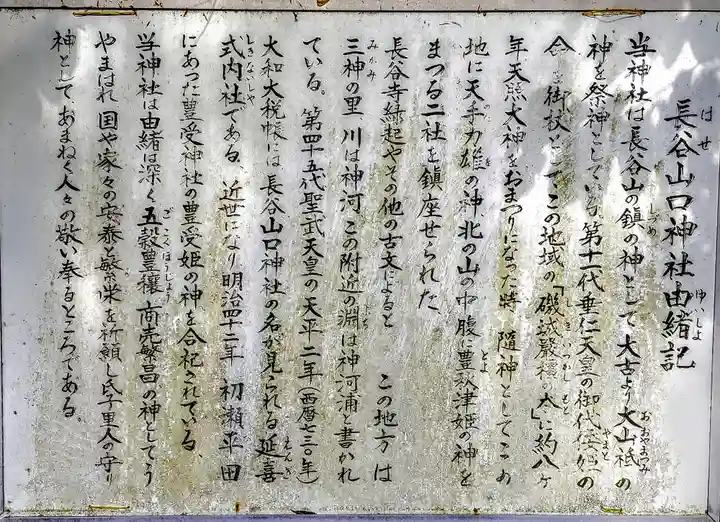 長谷山口神社由緒記
当神社は長谷山の鎮の神として 太古より大山祇の
神を祭神としている。第十一代垂仁天皇の御代倭姫の
命を御杖として、この地域の「磯城嚴橿の本」に約八ヶ
年天照大神をおまつりになった時 随神としてこの
地に天手力雄の神、北の山の中腹に豊秋津姫の神を
まつる二社を鎮座せられた
長谷寺縁起やその他の古文によると この地方は
三神の里 川は神河 この附近の淵は神河浦と書かれ
ている。第四十五代聖武天皇の天平二年(西暦七三〇年)
大和大税帳には 長谷山口神社の名が見られる 延喜
式内社である 近世になり明治四十二年 初瀬平田
にあった豊受神社の豊受姫の神を合祀されている。
当神社は由緒は深く 五穀豊穣 商売繁昌の神としてう
やまはれ 国や家々の安泰と繁栄を祈願し氏子里人の守り
神として、あまねく人々の敬い奉るところである。